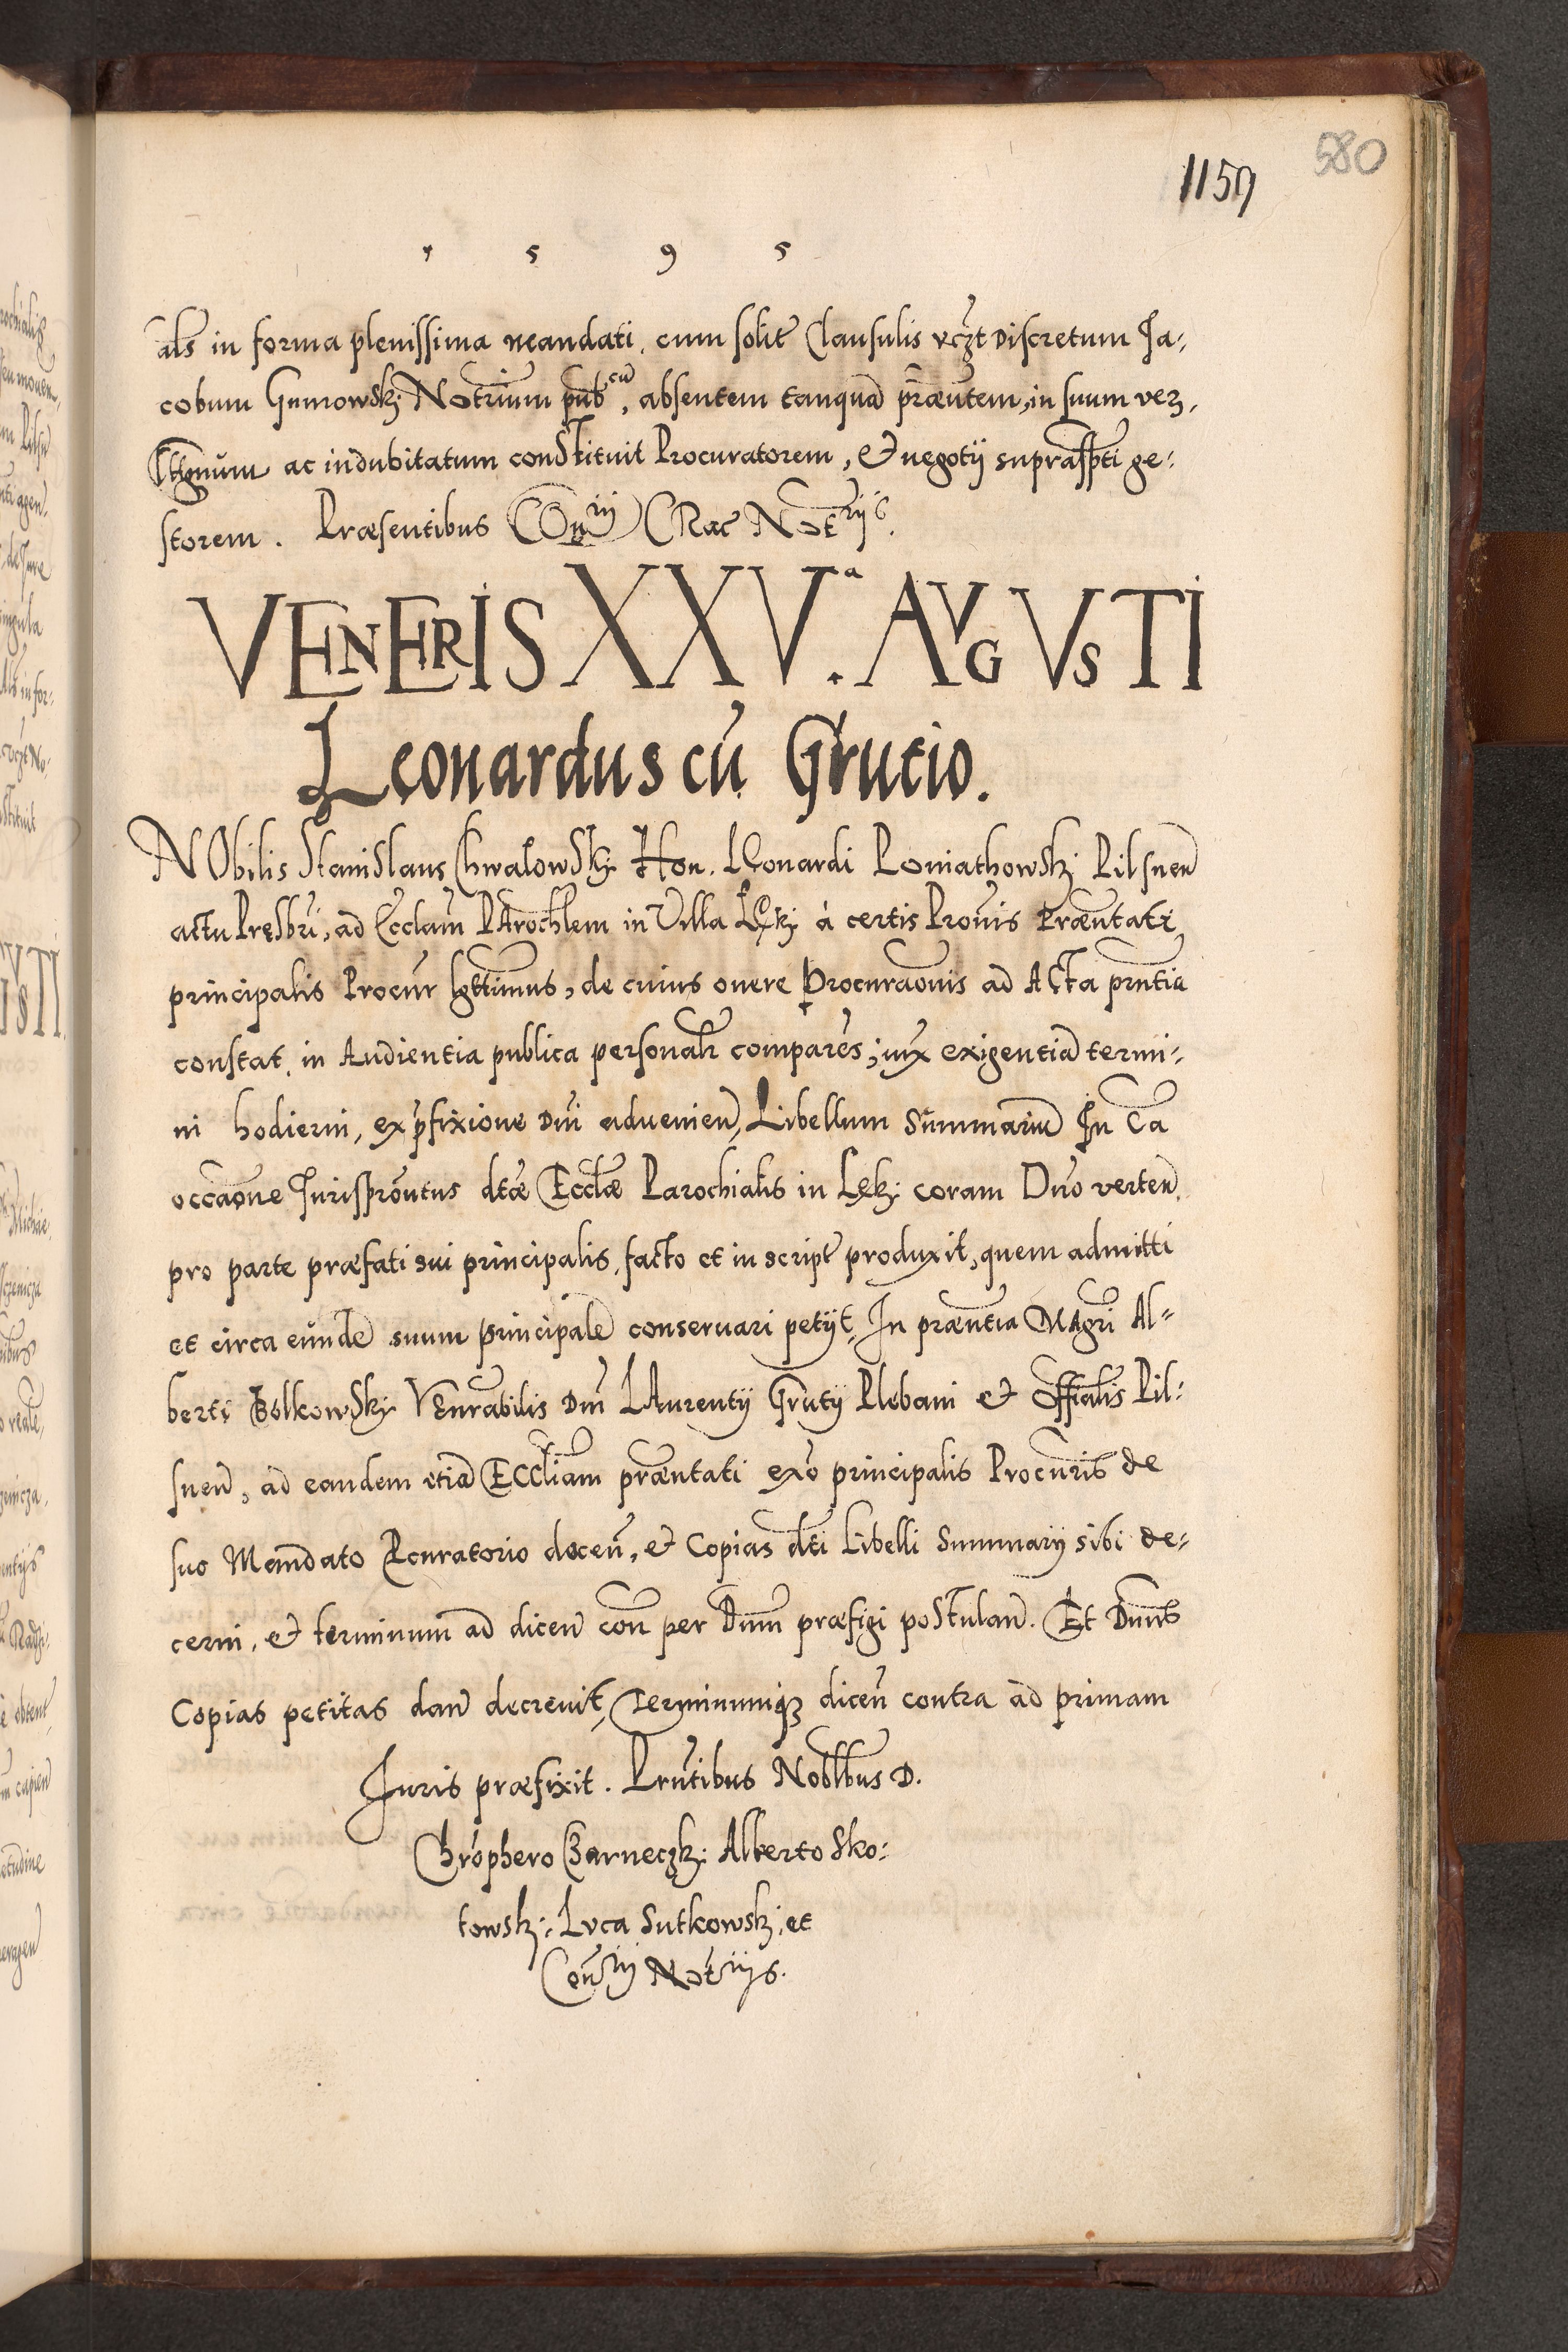 580
1159
1 5 9 5
als in forma plenissima mandati, cum solit Clausulis vczt Discretum Ja-
cobum Gumowskj Notrium pub cu, absentem tanqua praentem, in suum ver,
Ltthmum ac indubitatum constituit Procuratorem, et negotij suprasspti ge-
storem. Præsentibus Conrij Crac Notrijs.
VENERIS XXV.a AVGVSTI
Leonardus cu Grutio.
NObilis Stanislaus Chwalowskj Hon. LEonardi Poniathowskj Pilsnen
actu Presbri, ad Ecclam PArochlem in Villa Lękj à certis Prouis Præntati
principalis Procur lgttimus, de cuius onere Procuraonis ad Acta prntia
constat, in Audientia publica personalr compares, iux exigentia termi-
ni hodierni, ex pfixione Dni advenien, Libellum Summariu In Ca
occaone Jurisprontus dtæ Ecclæ Parochialis in Lękj coram Dno verten
pro parte præfati sui principalis, facto et in script produxit, quem admitti
et circa eunde suum principale conseruari petijt, In præntia MAgri Al-
berti Bolkowskj VEnrabilis Dni LAurentij Grutij Plebani et Offialis Pil-
snen, ad eandem etia ECCliam præntati exo principalis Procuris de
suo Mandato Pcuratorio docen, et Copias dti Libelli Summarij sibi de-
cerni, et terminum ad dicen con per Dnm præfigi postulan. Et Dnns
Copias petitas dan decreuit, Terminumq3 dicen contra ad primam
Juris præfixit. Prntibus Noblbus D.
Chrophero Czarneczkj Alberto Sko-
towskj, Lvca Sutkowskj et
Conrij Notrijs.